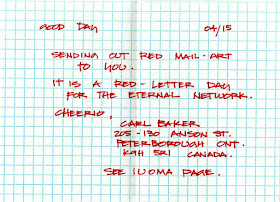 GOOD DAY 04/15
SENDING OUT RED MAIL-ART
TO YOU.
IT IS A RED-LETTER DAY
FOR THE ETERNAL NETWORK.
CHEERIO,
CARL BAKER
205-130 ANSON ST.
PETERBOROUGH ONT.
K9H 5R1 CANADA.
SEE IUOMA PAGE.